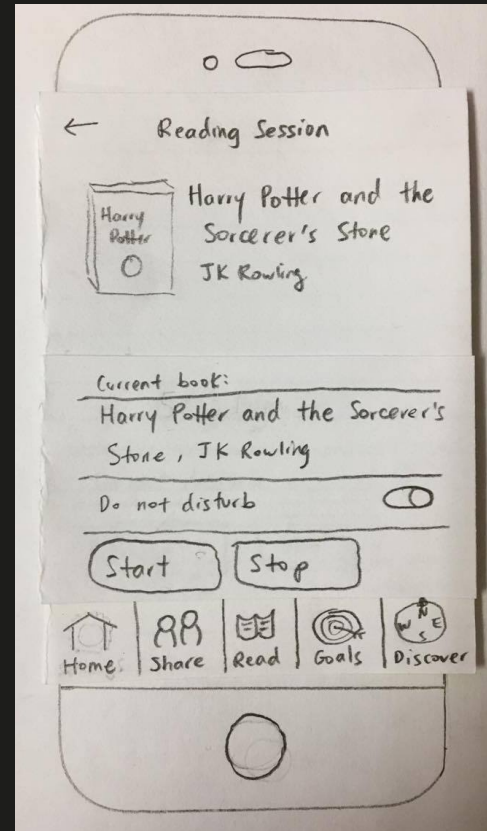 Reading Session
Harry Potter and the
Sorcerer's Stone
JK Rowling
Harry
Potter
Current book:
Harry Potter and the Sorcerer's
Stone, JK Rowling
Do not disturb
Start Stop
N
W E
S
Home Share Read Goals Discover